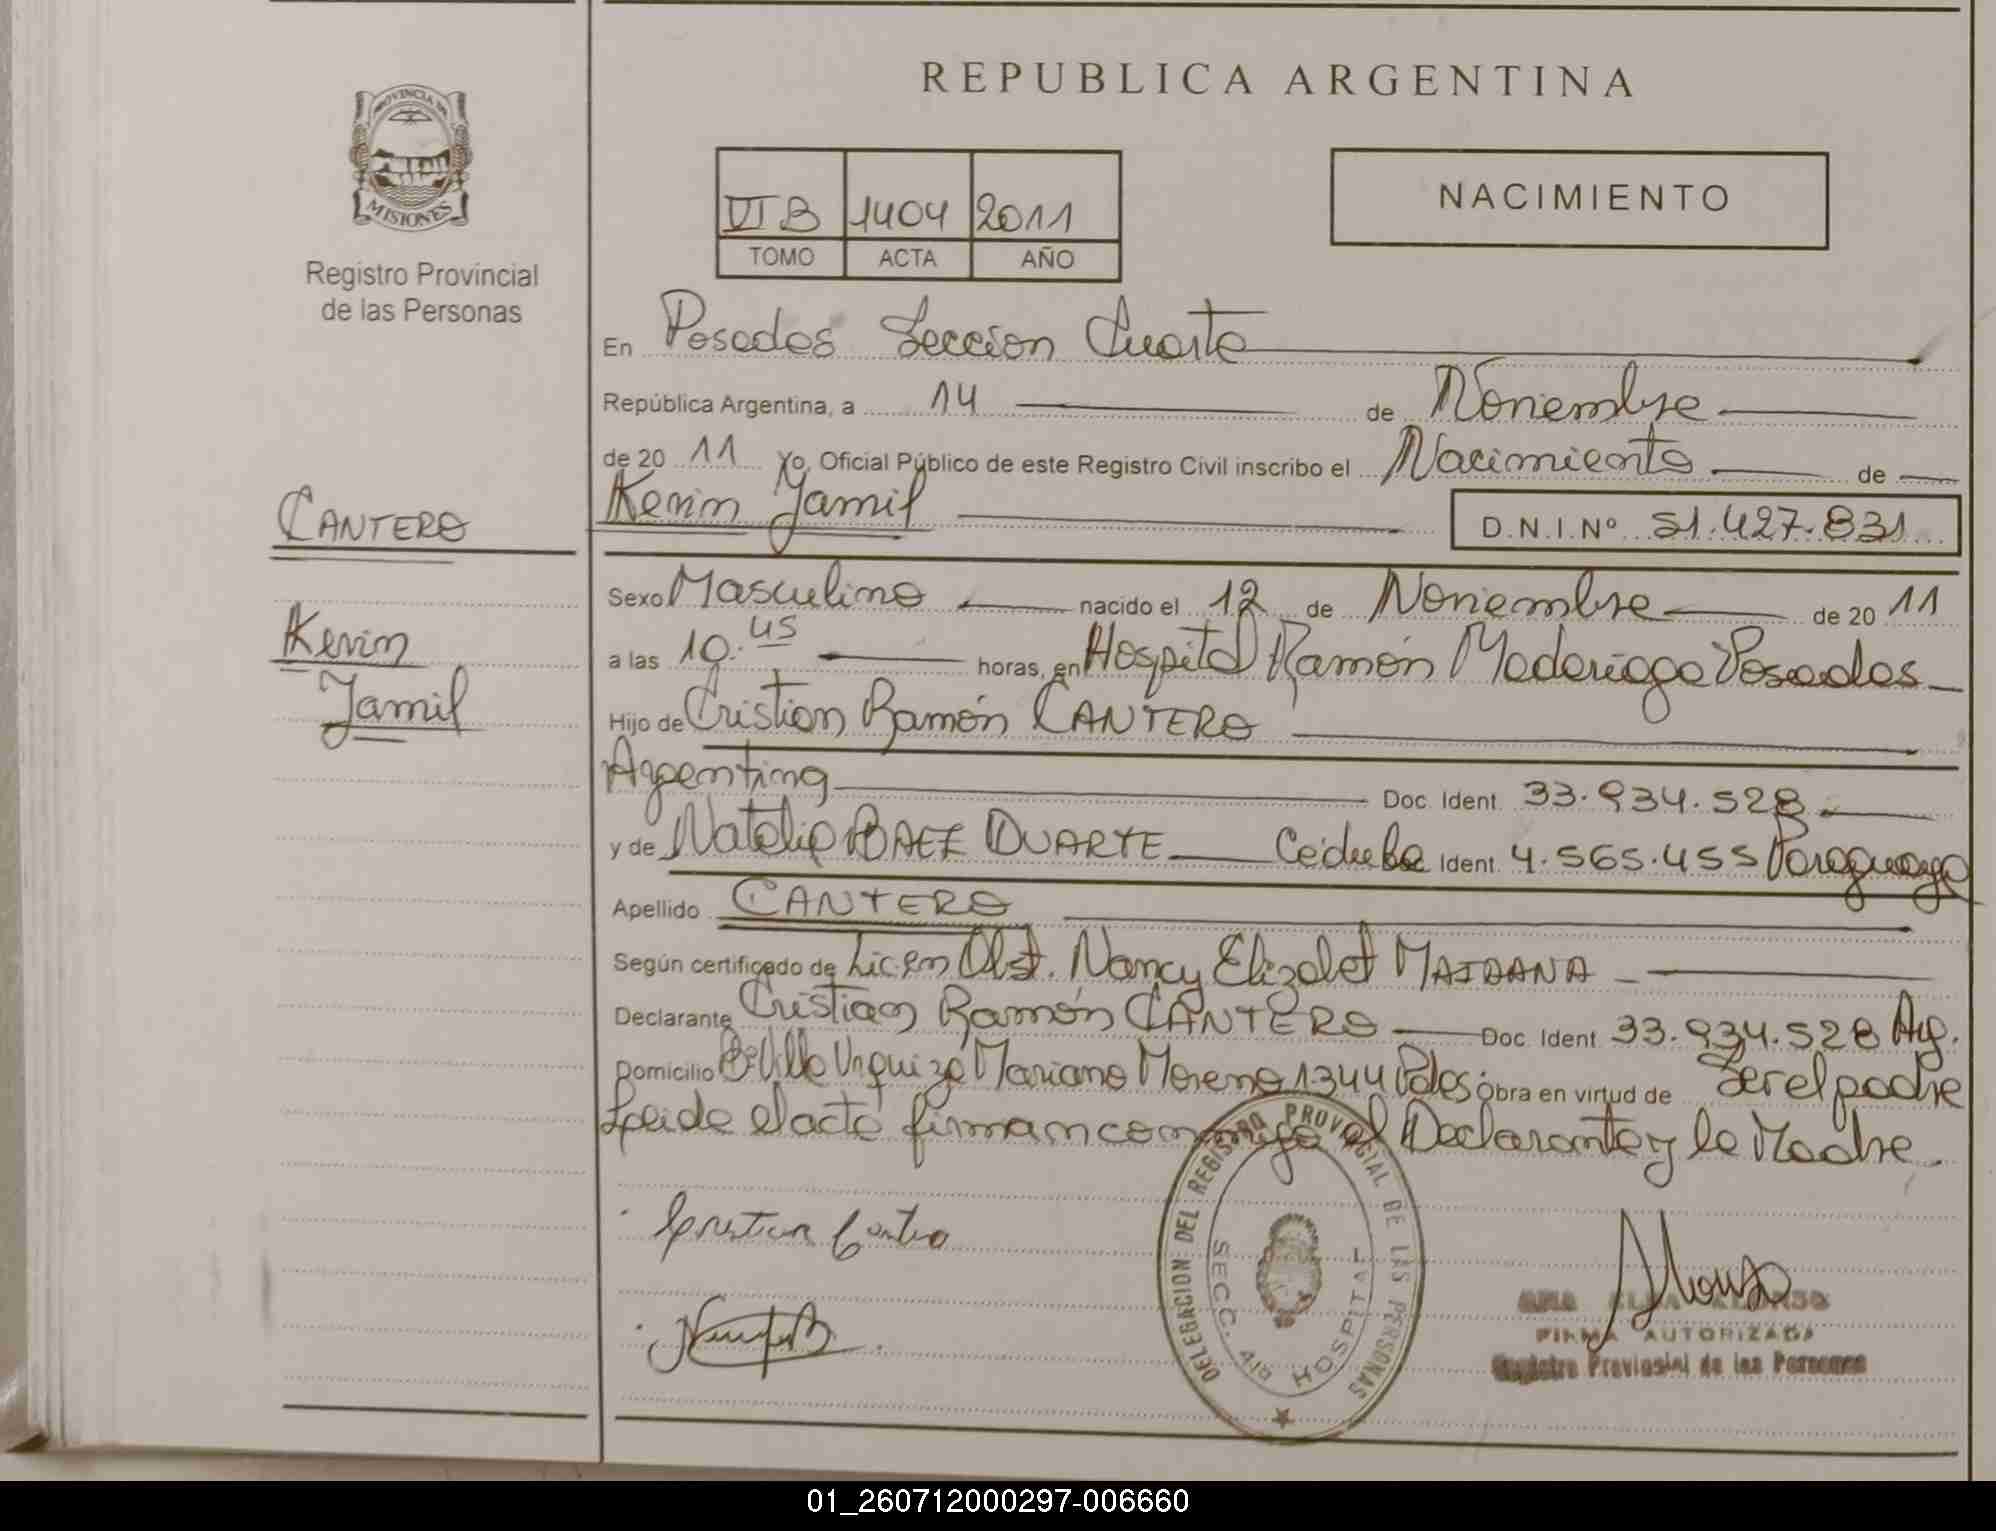 REPUBLICA ARGENTINA
PROVINCIA DE
MISIONES
Registro Provincial
de las Personas
VI B 1404 2011
TOMO ACTA AÑO
NACIMIENTO
En Posadas Sección Cuarta
República Argentina, a 14 de Noviembre
de 20 11 Yo, Oficial Público de este Registro Civil inscribo el Nacimiento de
Kevin Yamil
D.N.I.Nº 51.427.831
CANTERO
Kevin
Yamil
Sexo Masculino nacido el 12 de Noviembre de 20 11
a las 10:45 horas, en Hospital Ramón Madariaga Posadas
Hijo de Cristian Ramón CANTERO
Argentino Doc. Ident. 33.934.528
y de Natalia BAEZ DUARTE Cédula Ident. 4.565.455 Paraguaya
Apellido CANTERO
Según certificado de Licen Obst. Nancy Elizabet MAIDANA
Declarante Cristian Ramón CANTERO Doc. Ident. 33.934.528 Arg.
Domicilio Bº Villa Urquiza Mariano Moreno 1344 Pdas obra en virtud de Ser el padre
Leida el acta firman conmigo el Declarante y la Madre.
Cristian Cantero
DELEGACION DEL REGISTRO PROVINCIAL DE LAS PERSONAS
SECC. 4ta HOSPITAL
ANA ELSA ALONSO
FIRMA AUTORIZADA
Registro Provincial de las Personas
01_260712000297-006660